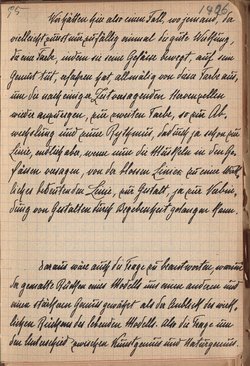 75
1926
Wir hätten hier aber einen Fall, wo jemand, der
vielleicht zunächst nur zufällig einmal die gute Wirkung,
die eine Farbe, indem sie seine Gefässe bewegt, auf sein
Gemüt tut, erfahren hat, allmälig von dieser Farbe aus,
um die nach einiger Zeit versagenden Nervenzellen
wieder anzuregen, zur zweiten Farbe, so zur Ab-
wechslung und zum Rythmus, dadurch ja schon zur
Linie, endlich aber, wenn nun die Muskeln in den Ge-
fässen versagen, von der blossen Linie zu einer wirk-
lichen bedeutenden Linie, zur Gestalt, ja zur Verbin-
dung von Gestalten durch Begebenheit gelangen kann.
Daraus wäre auch die Frage zu beantworten, warum
der gemalte Rücken eines Modells uns einen anderen und
einen stärkeren Genuss gewährt als der Anblick des wirk-
lichen Rückens des lebenden Modells. Also die Frage um
den Unterschied zwischen Kunstgenuss und Naturgenuss.